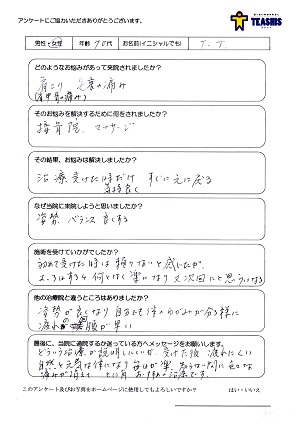 アンケートにご協力いただきありがとうございます。
TEASHIS
男性・女性 年齢 70代 お名前(イニシャルでも) T-T.
どのようなお悩みがあって来院されましたか?
肩こり 足裏の痛み
(肩甲骨の痛み)
そのお悩みを解決するために何をされましたか?
接骨院、マッサージ
その結果、お悩みは解決しましたか?
治療受けた時だけ すぐに元に戻る
気持良く
なぜ当院に来院しようと思いましたか?
姿勢 バランス良くする
施術を受けていかがでしたか?
初めて受けた時は頼りないと感じたが、
すると何となく楽になり又次回にと思うようになる
他の治療院と違うところはありましたか?
姿勢が良くなり自分でも体のゆがみが分る様に
疲れの回復が早い
最後に、当院に通院するか迷っている方へメッセージをお願いします。
どういう治療か説明しにくいが、受けた後 疲れにくい
自然と元気な体になり毎日が楽、知らない間に色々な
痛みが消えて とにかくお勧めの治療です。
このアンケート及びお写真をホームページに使用してもよろしいですか? はい・いいえ